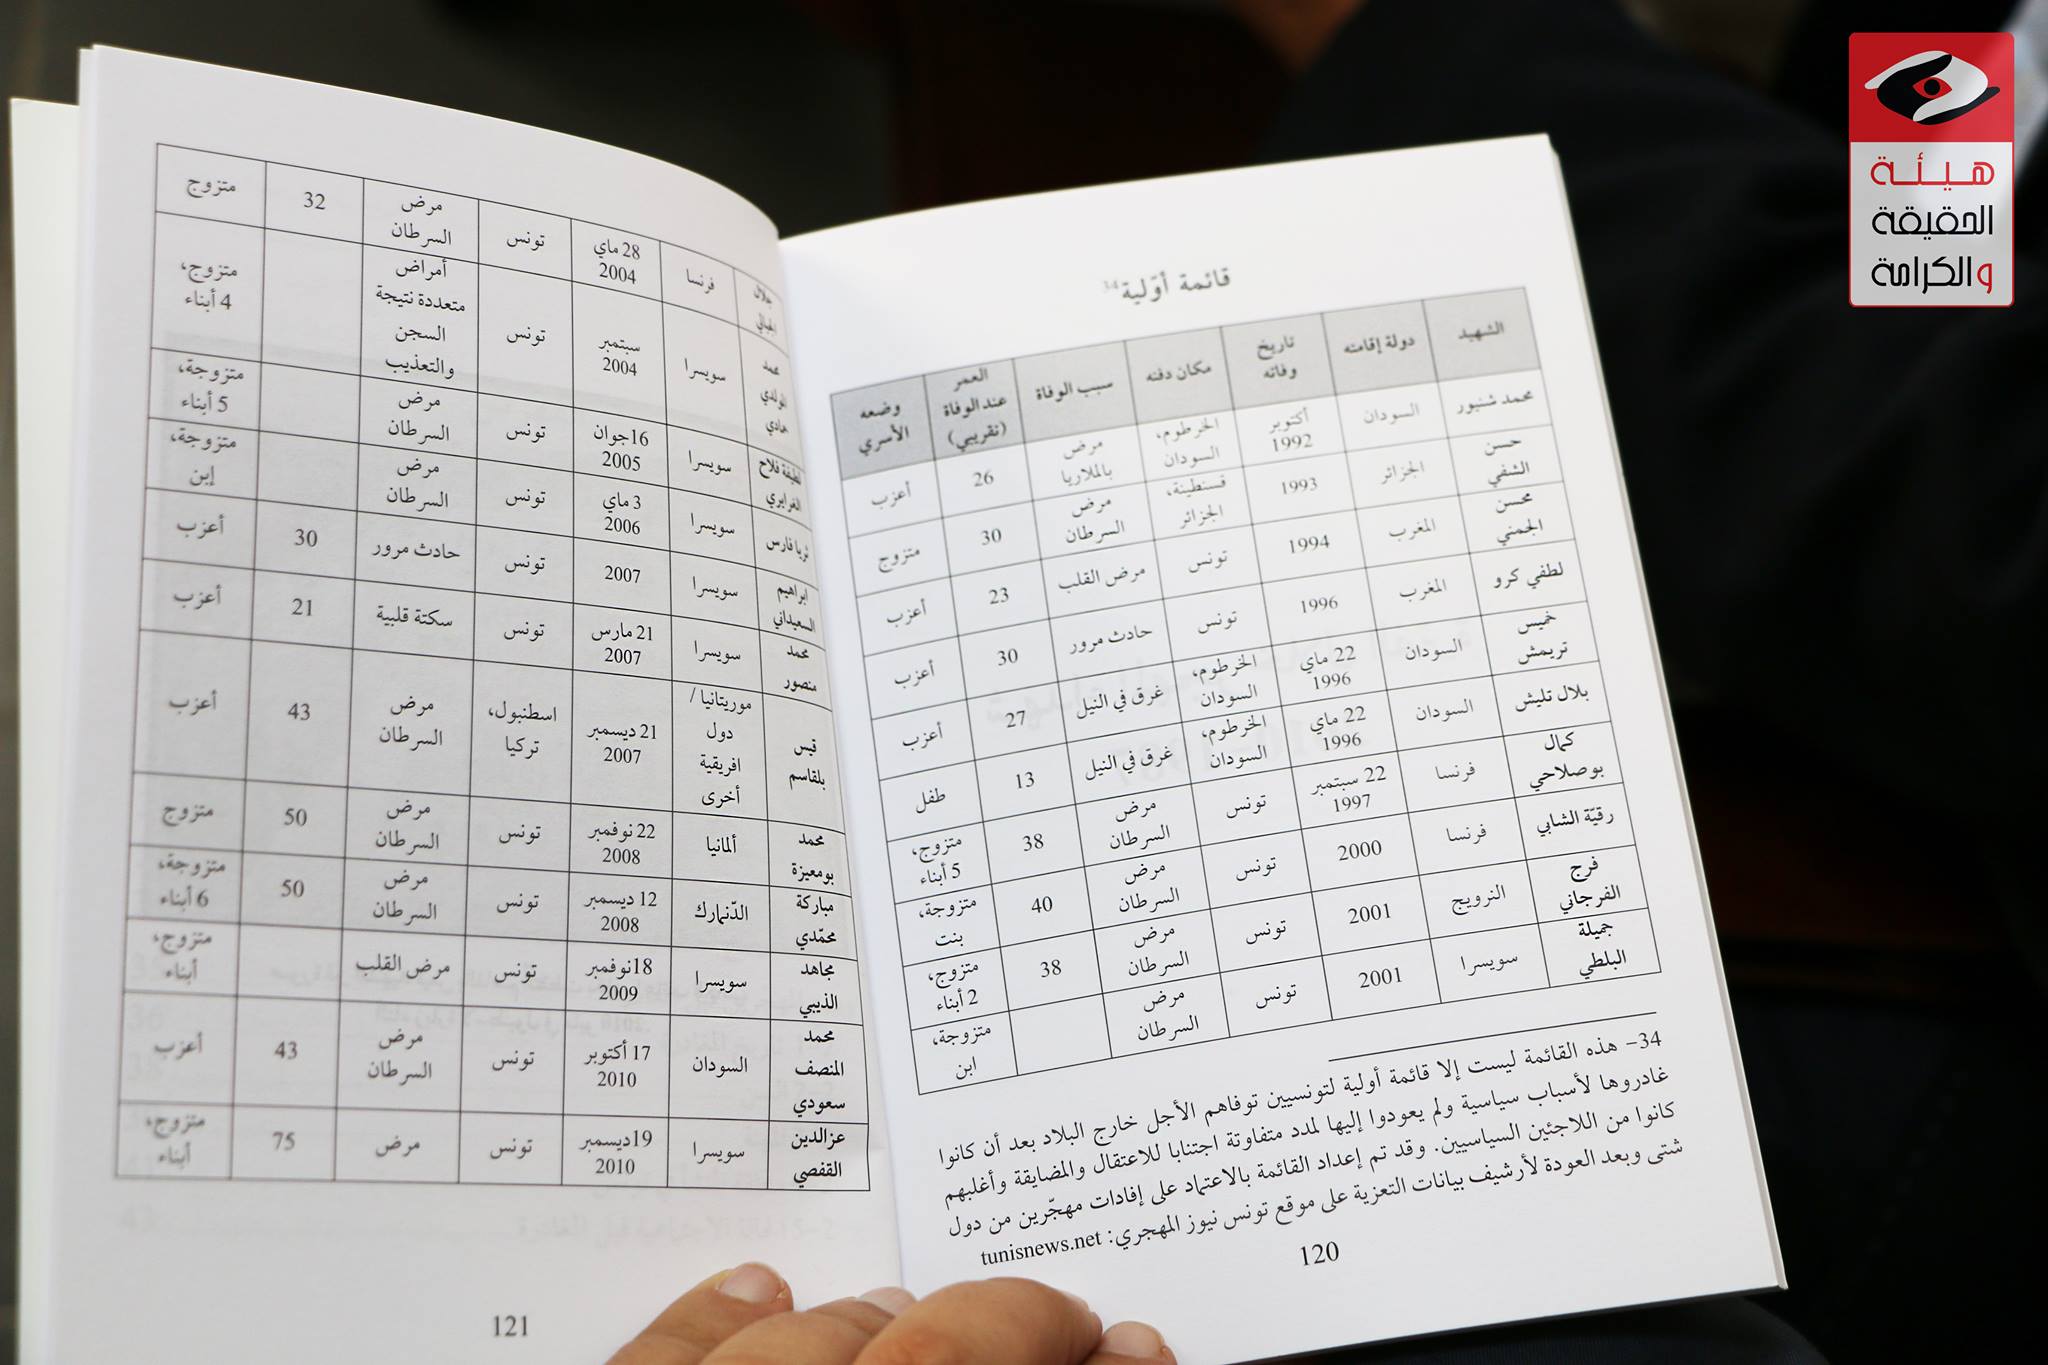 هيئة
الحقيقة
والكرامة
قائمة أوّلية³⁴
الشهيد دولة إقامته تاريخ وفاته مكان دفنه سبب الوفاة العمر عند الوفاة (تقريبي) وضعه الأسري
محمد شنبور السودان أكتوبر 1992 الخرطوم، السودان مرض بالملاريا 26 أعزب
حسن الشفي الجزائر 1993 قسنطينة، الجزائر مرض السرطان 30 متزوج
محسن الجمني المغرب 1994 تونس مرض القلب 23 أعزب
لطفي كرو المغرب 1996 تونس حادث مرور 30 أعزب
خميس تريمش السودان 22 ماي 1996 الخرطوم، السودان غرق في النيل 27 أعزب
بلال تليش السودان 22 ماي 1996 الخرطوم، السودان غرق في النيل 13 طفل
كمال بوصلاحي فرنسا 22 سبتمبر 1997 تونس مرض السرطان 38 متزوج، 5 أبناء
رقيّة الشابي فرنسا 2000 تونس مرض السرطان 40 متزوجة، بنت
فرج الفرجاني النرويج 2001 تونس مرض السرطان 38 متزوج، 2 أبناء
جميلة البلطي سويسرا 2001 تونس مرض السرطان متزوجة، ابن
34- هذه القائمة ليست إلا قائمة أولية لتونسيين توفاهم الأجل خارج البلاد بعد أن كانوا
غادروها لأسباب سياسية ولم يعودوا إليها لمدد متفاوتة اجتنابا للاعتقال والمضايقة وأغلبهم
كانوا من اللاجئين السياسيين. وقد تم إعداد القائمة بالاعتماد على إفادات مهجّرين من دول
شتى وبعد العودة لأرشيف بيانات التعزية على موقع تونس نيوز المهجري: tunisnews.net
120
جلال فرنسا 28 ماي 2004 تونس مرض السرطان 32 متزوج
محمد المولدي سويسرا سبتمبر 2004 تونس أمراض متعددة نتيجة السجن والتعذيب متزوج، 4 أبناء
لطيفة فلاح الغرايري سويسرا 16جوان 2005 تونس مرض السرطان متزوجة، 5 أبناء
ثريا فارس سويسرا 3 ماي 2006 تونس مرض السرطان متزوجة، إبن
ابراهيم السعيداني سويسرا 2007 تونس حادث مرور 30 أعزب
محمد منصور سويسرا 21 مارس 2007 تونس سكتة قلبية 21 أعزب
قيس بلقاسم موريتانيا / دول افريقية أخرى 21 ديسمبر 2007 اسطنبول، تركيا مرض السرطان 43 أعزب
محمد بومعيزة ألمانيا 22 نوفمبر 2008 تونس مرض السرطان 50 متزوج
مباركة محمّدي الدّنمارك 12 ديسمبر 2008 تونس مرض السرطان 50 متزوجة، 6 أبناء
مجاهد الذيبي سويسرا 18نوفمبر 2009 تونس مرض القلب متزوج، أبناء
محمد المنصف سعودي السودان 17 أكتوبر 2010 تونس مرض السرطان 43 أعزب
عزالدين القفصي سويسرا 19ديسمبر 2010 تونس مرض 75 متزوج، أبناء
121